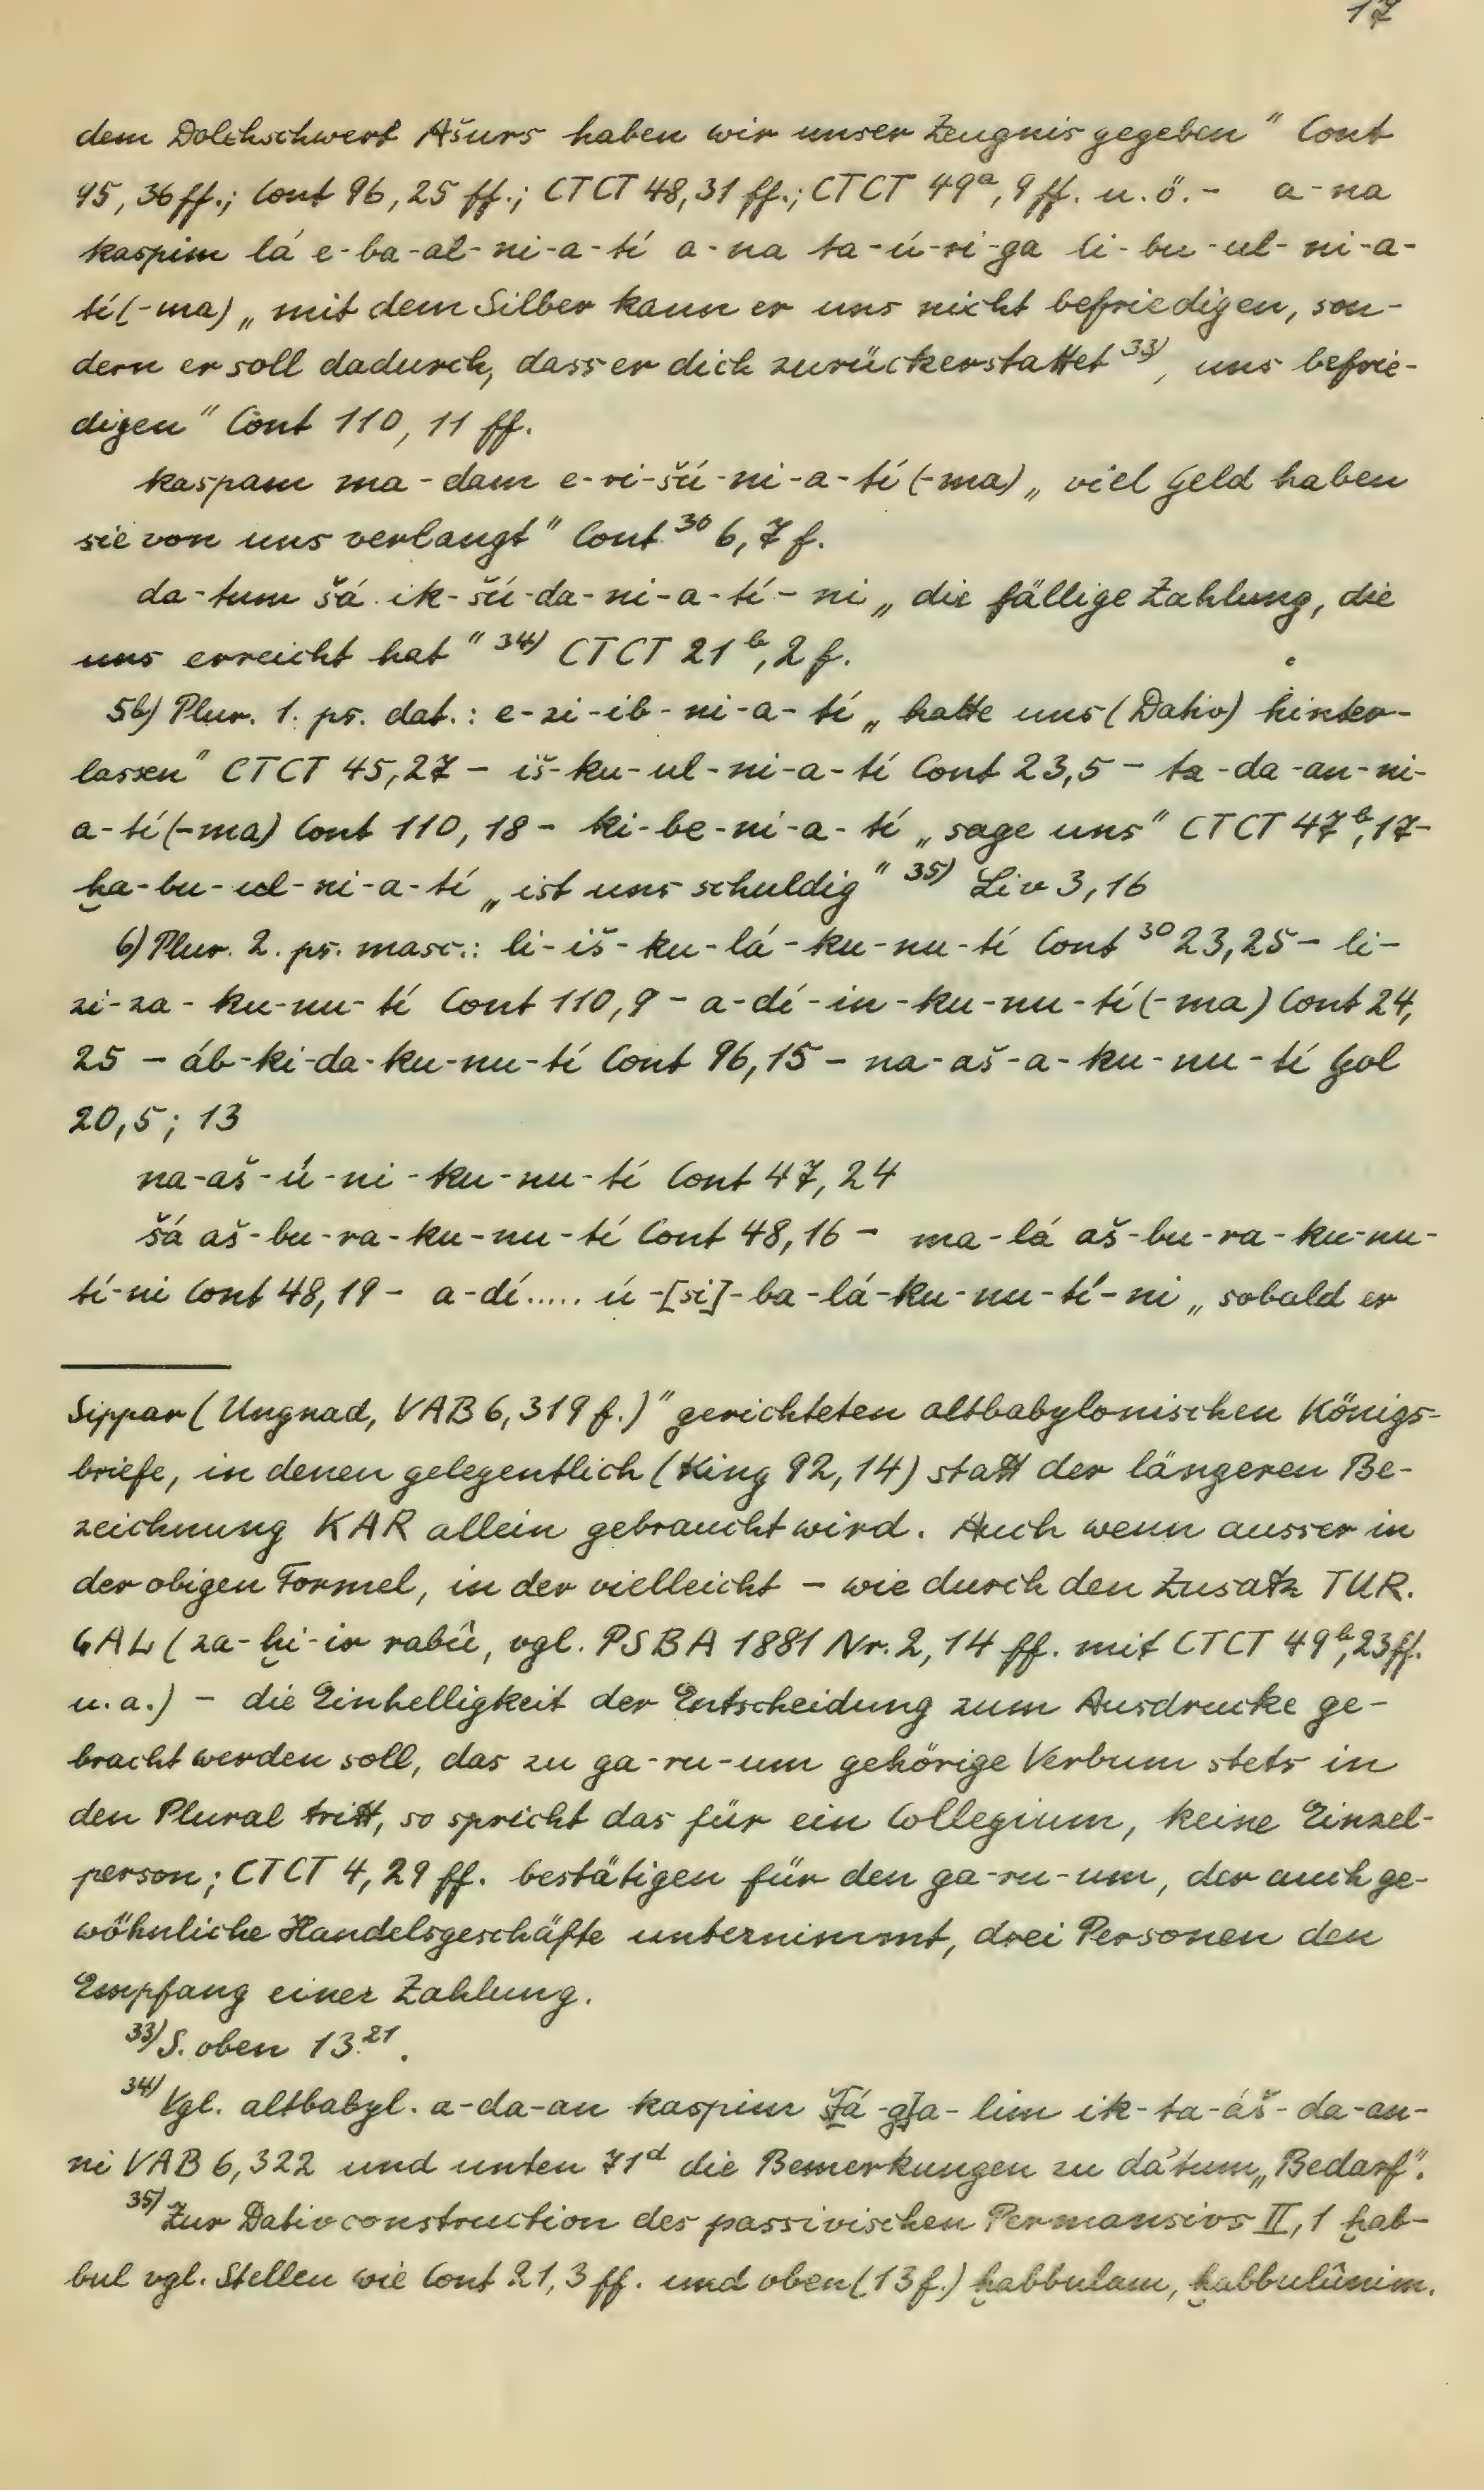 17
dem Dolchschwert Ašurs haben wir unser Zeugnis gegeben" Cont
95, 36 ff.; Cont 96, 25 ff.; CTCT 48, 31 ff.; CTCT 49ᵃ, 9 ff. u. ö. - a-na
kaspim lá e-ba-al-ni-a-tí a-na ta-ú-ri-ga li-bu-ul-ni-a-
tí(-ma) „mit dem Silber kann er uns nicht befriedigen, son-
dern er soll dadurch, dass er dich zurückerstattet ³³⁾, uns befrie-
digen" Cont 110, 11 ff.
kaspam ma-dam e-ri-šú-ni-a-tí(-ma) „viel Geld haben
sie von uns verlangt" Cont ³⁰ 6, 7 f.
da-tum šá ik-šú-da-ni-a-tí-ni „die fällige Zahlung, die
uns erreicht hat" ³⁴⁾ CTCT 21ᵇ, 2 f.
5b) Plur. 1. ps. dat.: e-zi-ib-ni-a-tí „hatte uns (Dativ) hinter-
lassen" CTCT 45, 27 - iš-ku-ul-ni-a-tí Cont 23, 5 - ta-da-an-ni-
a-tí(-ma) Cont 110, 18 - ki-be-ni-a-tí „sage uns" CTCT 47ᵇ, 17-
ḫa-bu-ul-ni-a-tí „ist uns schuldig" ³⁵⁾ Liv 3, 16
6) Plur. 2. ps. masc.: li-iš-ku-lá-ku-nu-tí Cont ³⁰ 23, 25 - li-
zi-za-ku-nu-tí Cont 110, 9 - a-dí-in-ku-nu-tí(-ma) Cont 24,
25 - áb-ki-da-ku-nu-tí Cont 96, 15 - na-aš-a-ku-nu-tí Gol
20, 5; 13
na-aš-ú-ni-ku-nu-tí Cont 47, 24
šá aš-bu-ra-ku-nu-tí Cont 48, 16 - ma-lá aš-bu-ra-ku-nu-
tí-ni Cont 48, 19 - a-dí..... ú-[si]-ba-lá-ku-nu-tí-ni „sobald er
Sippar (Ungnad, VAB 6, 319 f.)" gerichteten altbabylonischen Königs-
briefe, in denen gelegentlich (King 92, 14) statt der längeren Be-
zeichnung KAR allein gebraucht wird. Auch wenn ausser in
der obigen Formel, in der vielleicht - wie durch den Zusatz TUR.
GAL (za-ḫi-ir rabû, vgl. PSBA 1881 Nr. 2, 14 ff. mit CTCT 49ᵇ, 23 ff.
u. a.) - die Einhelligkeit der Entscheidung zum Ausdrucke ge-
bracht werden soll, das zu ga-ru-um gehörige Verbum stets in
den Plural tritt, so spricht das für ein Collegium, keine Einzel-
person; CTCT 4, 29 ff. bestätigen für den ga-ru-um, der auch ge-
wöhnliche Handelsgeschäfte unternimmt, drei Personen den
Empfang einer Zahlung.
³³⁾ S. oben 13²¹.
³⁴⁾ Vgl. altbabyl. a-da-an kaspim ik-ta-áš-da-an-
ni VAB 6, 322 und unten 71ᵈ die Bemerkungen zu dâtum „Bedarf".
³⁵⁾ Zur Dativconstruction des passivischen Permansivs II, 1 ḫab-
bul vgl. Stellen wie Cont 21, 3 ff. und oben (13 f.) ḫabbulam, ḫabbulûnim.